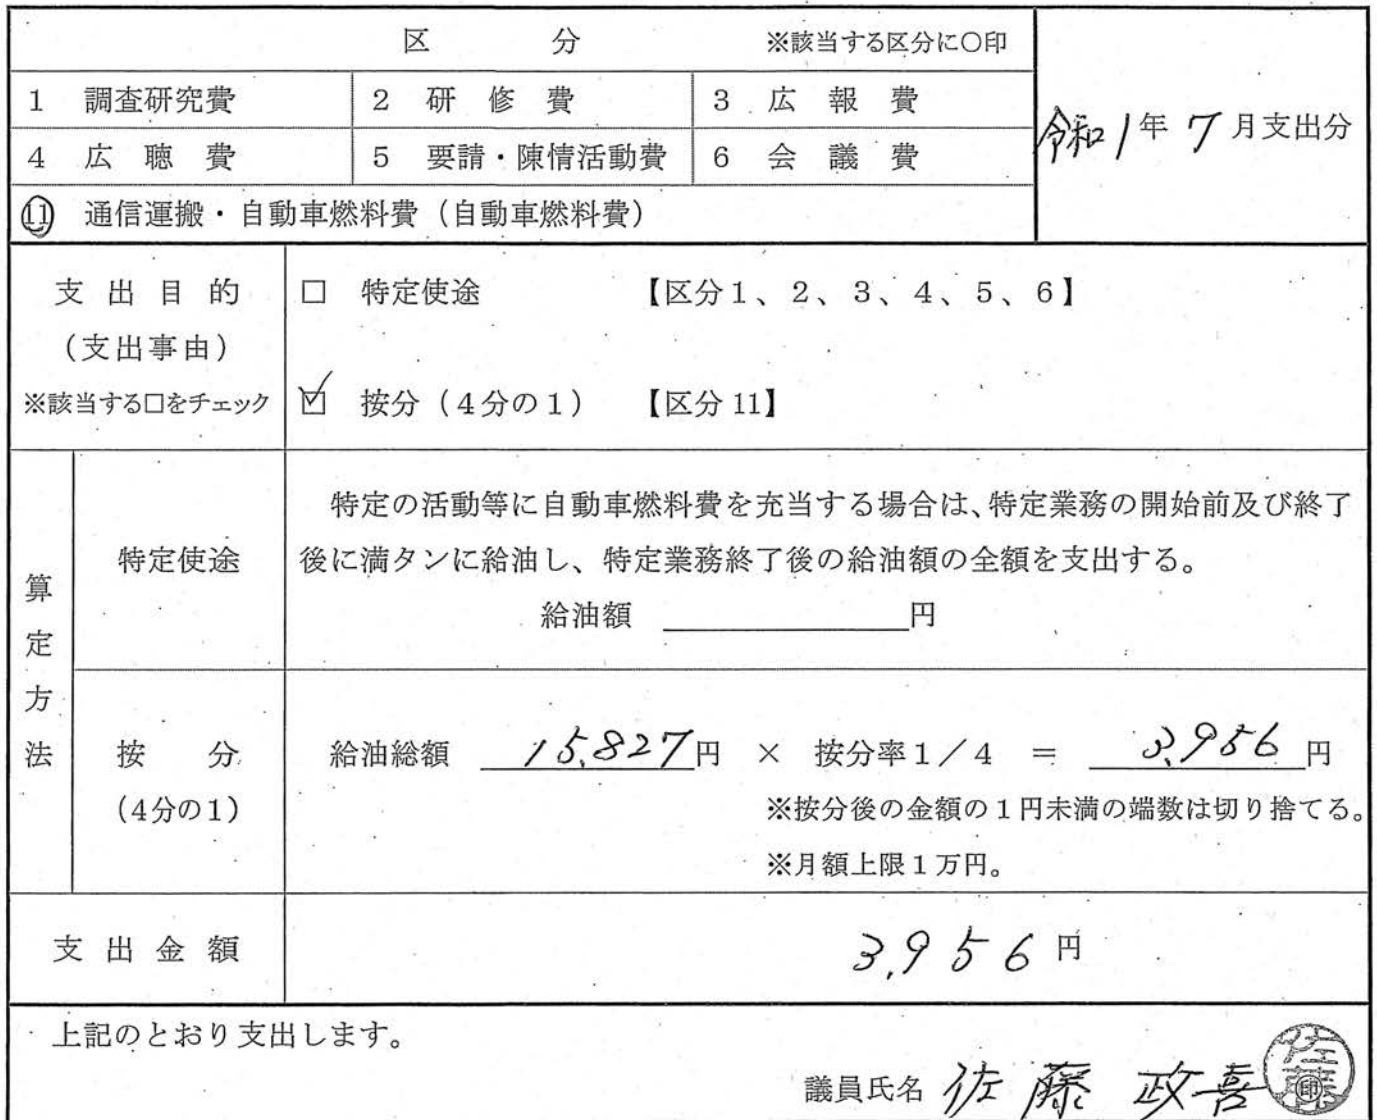 区　　　分　　　※該当する区分に○印
1　調査研究費　2　研　修　費　3　広　報　費
令和1年7月支出分
4　広　聴　費　5　要請・陳情活動費　6　会　議　費
⑪　通信運搬・自動車燃料費（自動車燃料費）
支 出 目 的
（支出事由）
※該当する□をチェック
□　特定使途　　【区分1、2、3、4、5、6】
☑　按分（4分の1）　【区分11】
算定方法
特定使途
特定の活動等に自動車燃料費を充当する場合は、特定業務の開始前及び終了
後に満タンに給油し、特定業務終了後の給油額の全額を支出する。
給油額　　　　　円
按　　分
（4分の1）
給油総額　15,827円　×　按分率1／4　＝　3,956円
※按分後の金額の1円未満の端数は切り捨てる。
※月額上限1万円。
支 出 金 額　3,956円
上記のとおり支出します。
議員氏名 佐藤 政喜 ㊞
佐藤